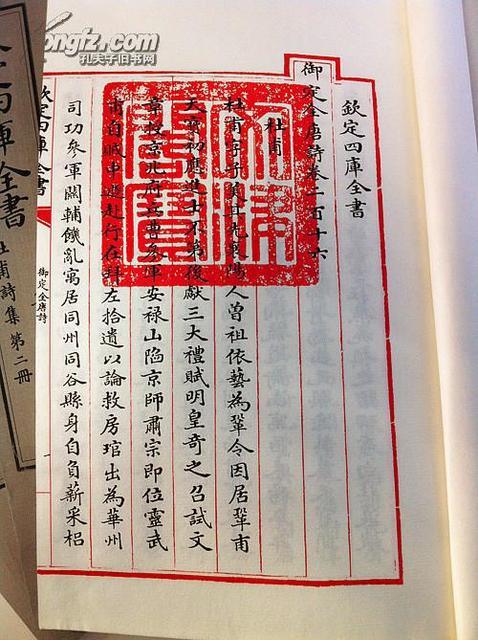 欽定四庫全書
御定全唐詩卷二百十六
杜甫
杜甫字子美其先襄陽人曾祖依藝為鞏令因居鞏甫
天寶初應進士不第後獻三大禮賦明皇奇之召試文
章授京兆府兵曹參軍安禄山陷京師肅宗即位靈武
甫自賊中遯赴行在拜左拾遺以論救房琯出為華州
司功參軍關輔饑亂寓居同州同谷縣身自負薪采梠
欽定四庫全書
御定全唐詩
四庫全書
杜甫詩集 第二冊
kongfz.com
孔夫子旧书网